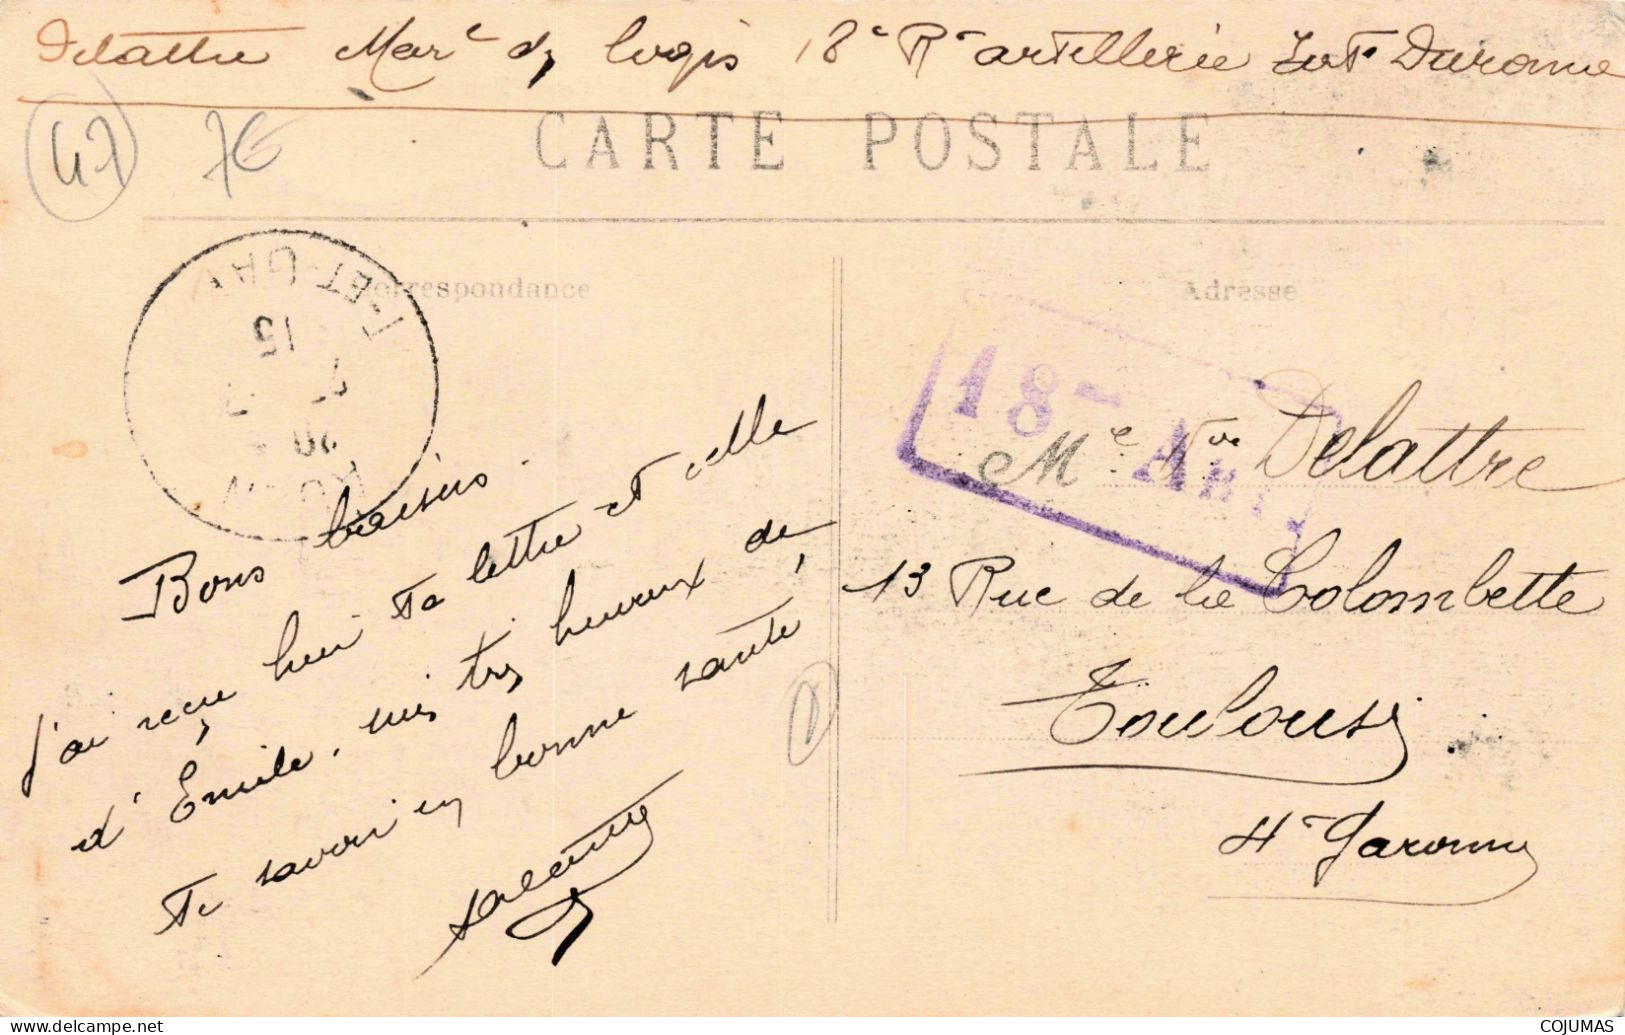 Delattre Mar^c des logis 18^e R^e artillerie Inf^e Duranne
47
7€
CARTE POSTALE
Correspondance
Adresse
T-ET-GAR
15
7 - 7
20
18 - ART.
Bons baisers.
J'ai reçu hier ta lettre et celle
d'Emile. suis très heureux de
te savoir en bonne santé
M^e V^ve Delattre
13 Rue de la Colombette
Toulouse
H^te Garonne
COJUMAS